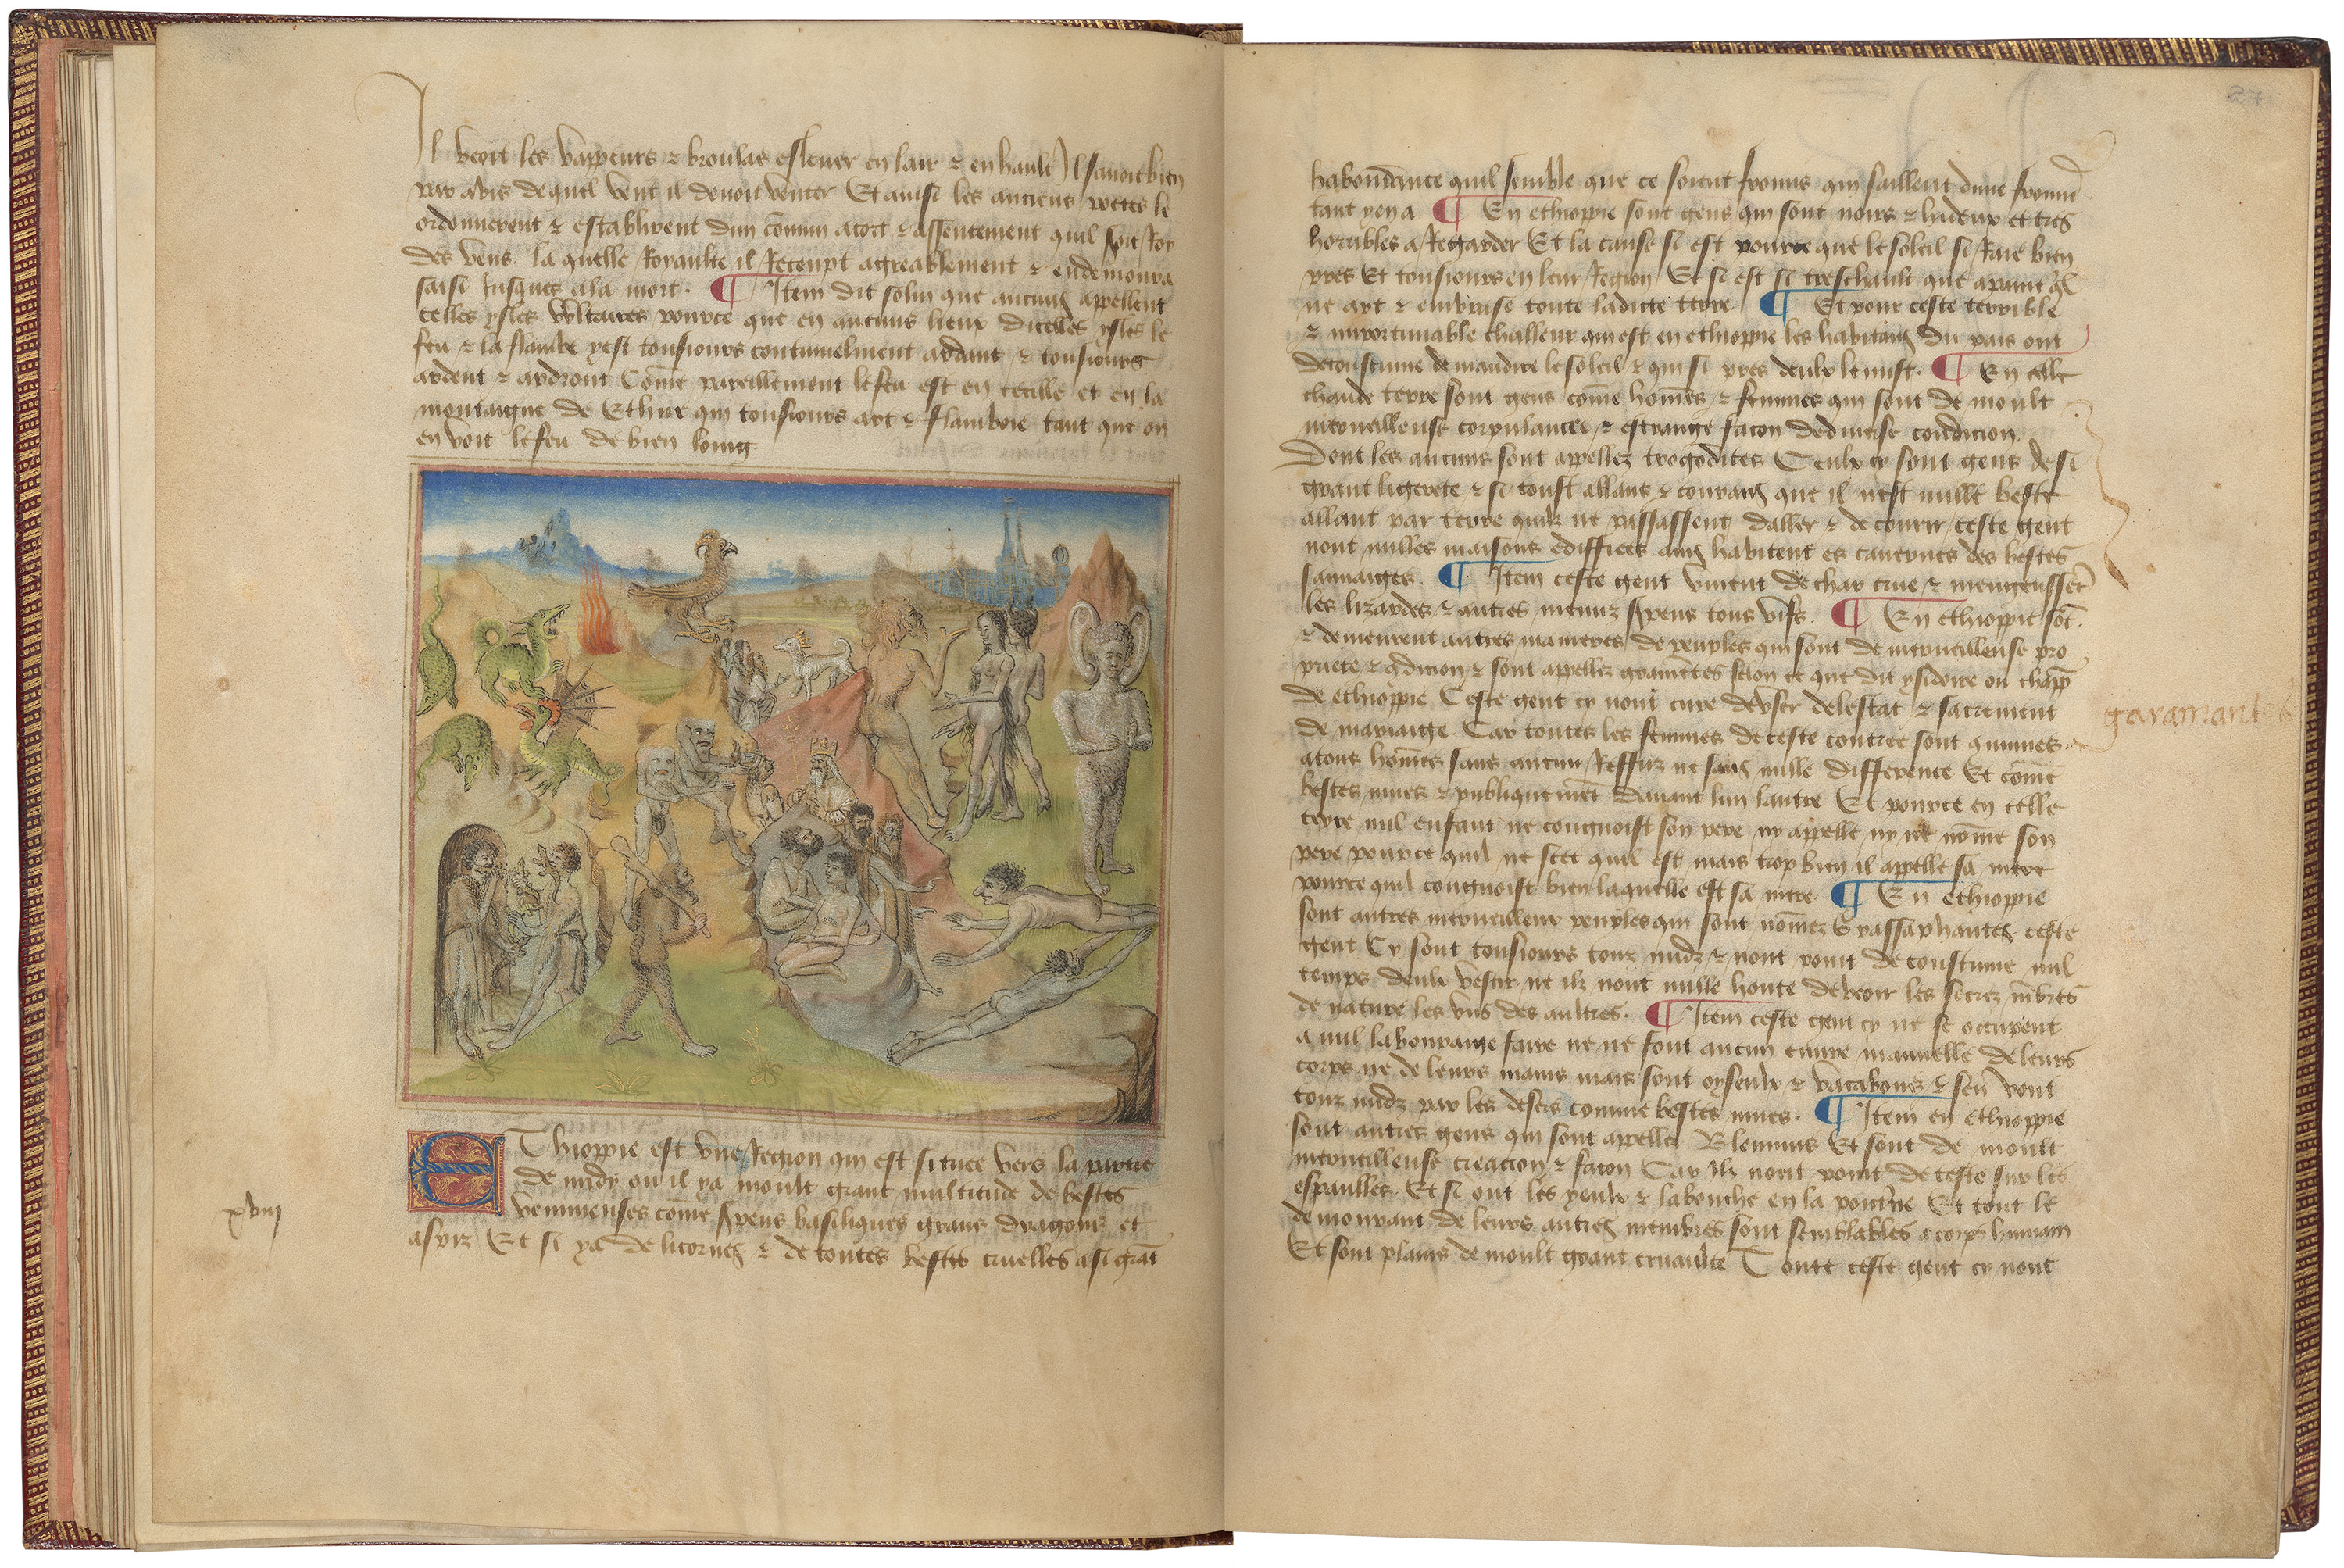 Il veoit les vappeurs ⁊ broulas eslever en lair ⁊ en hault Il savoit bien
par avis de quel vent il devoit venter Et ainsi les anciens poetes le
ordonnerent ⁊ establirent dun cōmun acort ⁊ assentement quil soit Roy
des vens. la quelle Royaulte il Receupt agreablement ⁊ en demoura
saisi jusques a la mort. ¶ Item dit solin que aucuns appellent
celles ysles pource que en aucuns lieux dicelles ysles le
feu ⁊ la flambe y est tousiours continuelment ardant ⁊ tousiours
ardent ⁊ ardront Cōme pareillement le feu est en cecille et en la
montaigne de Ethne qui tousiours art ⁊ flamboie tant que on
en voit le feu de bien loing
EThioppie est une Region qui est situee vers la partie
de midy ou il y a moult grant multitude de bestes
venimeuses cōme spens basiliques grans dragons et
aspiz Et si y a de licornes ⁊ de toutes bestes cruelles a si grāt
xviii
27
habondance quil semble que ce soient fromis qui saillent dune fromie
tant y en a ¶ En ethioppie sont gens qui sont noirs ⁊ hideux et tres
horribles a Regarder Et la cause si est pource que le soleil si Raie bien
pres Et tousiours en leur Region Et si est si treschault que a paine
ne art ⁊ embrase toute ladicte terre. ¶ Et pour ceste terrible
⁊ importunable challeur qui est en ethioppie les habitans du pais ont
de coustume de mauldire le soleil ⁊ qui si pres deulx le mist. ¶ En celle
chaude terre sont gens cōme homēs ⁊ femmes qui sont de moult
merveilleuse corpulance ⁊ estrange facon de diverse condicion.
Dont les aucuns sont appellez trogodites Ceulx cy sont gens de si
grant ligerete ⁊ si tost allans ⁊ courans que il nest nulle beste
allant par terre quilz ne passassent daller ⁊ de courir / ceste gent
nont nulles maisons ediffiees ains habitent es cavernes des bestes
sauvaiges. ¶ Item ceste gent vivent de char crue ⁊ mengussēt
les lizardes ⁊ autres menuz spens tous vifs. ¶ En ethioppie sōt
⁊ demeurent autres manieres de peuples qui sont de merveilleuse pro
priete ⁊ ꝯdicion ⁊ sont appellez selon ce que dit ysidoire ou chapp̄
de ethioppie Ceste gent cy nont cure de user de lestat ⁊ sacrement
de mariaige. Car toutes les femmes de ceste contree sont ꝯmunes
a tous homēs sans aucun Reffuz ne sans nulle difference Et cōme
bestes mues ⁊ publiquemēt davant lun lautre Et pource en celle
terre nul enfant ne congnoist son pere ny appelle ny ne nōme son
pere pource quil ne scet quil est mais trop bien il appelle sa mere
pource quil congnoist bien laquelle est sa mere. ¶ En ethioppie
sont autres merveilleux peuples qui sont nōmez Grassaphantes ceste
gent Cy sont tousiours touz nudz ⁊ nont point de coustume nul
temps deulx vestir ne ilz nont nulle honte de veoir les secrez mēbres
de nature les uns des aultres. ¶ Item ceste gent cy ne se occupent
a nul labouraige faire ne ne font aucun euvre manuelle de leurs
corps ne de leurs mains mais sont oyseulx ⁊ vacabons ⁊ sen vont
touz nudz par les desers comme bestes mues. ¶ Item en ethioppie
sont autres gens qui sont apellez Blemmis Et sont de moult
merveilleuse creacion ⁊ facon Car ilz nont point de teste sur les
espaulles. Et si ont les yeulx ⁊ la bouche en la poitrine Et tout le
demourant de leurs autres membres sont semblables a corps humain
Et sont plains de moult grant cruaulte Toute ceste gent cy nont
garamantes